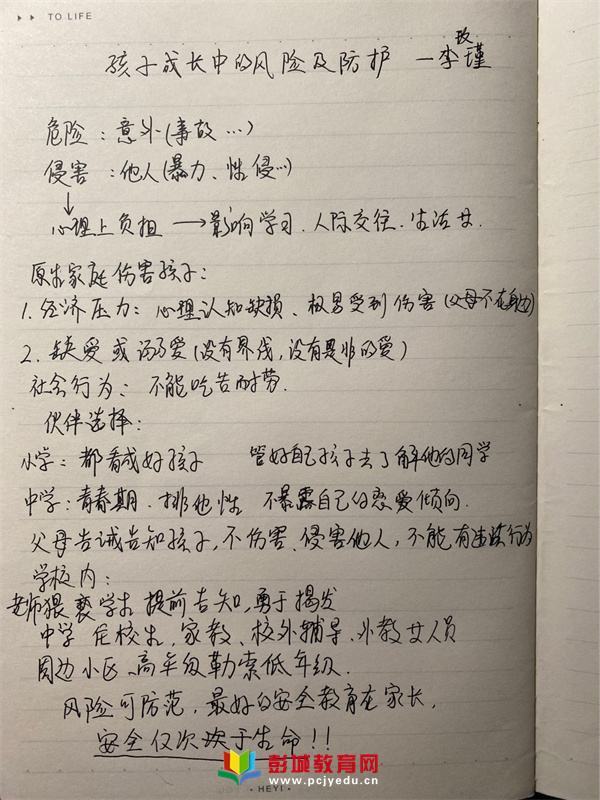 TO LIFE
孩子成长中的风险及防护 —李玫瑾
危险：意外（事故…）
侵害：他人（暴力、性侵…）
↓
心理上负担 → 影响学习、人际交往、生活
原生家庭伤害孩子：
1. 经济压力：心理认知缺损、极易受到伤害（父母不在身边）
2. 缺爱或溺爱（没有界线，没有是非的爱）
社会行为：不能吃苦耐劳．
伙伴选择：
小学：都看成好孩子 管好自己孩子去了解他的同学
中学：青春期．排他性 不暴露自己的恋爱倾向．
父母告诫告知孩子，不伤害、侵害他人，不能有违法行为
学校内：
老师猥亵学生 提前告知，勇于揭发
中学 住校生，家教、校外辅导、外教人员
周边小区、高年级勒索低年级．
风险可防范，最好的安全教育在家长，
安全仅次于生命！！
彭城教育网
www.pcjyedu.cn
· HEYI ·